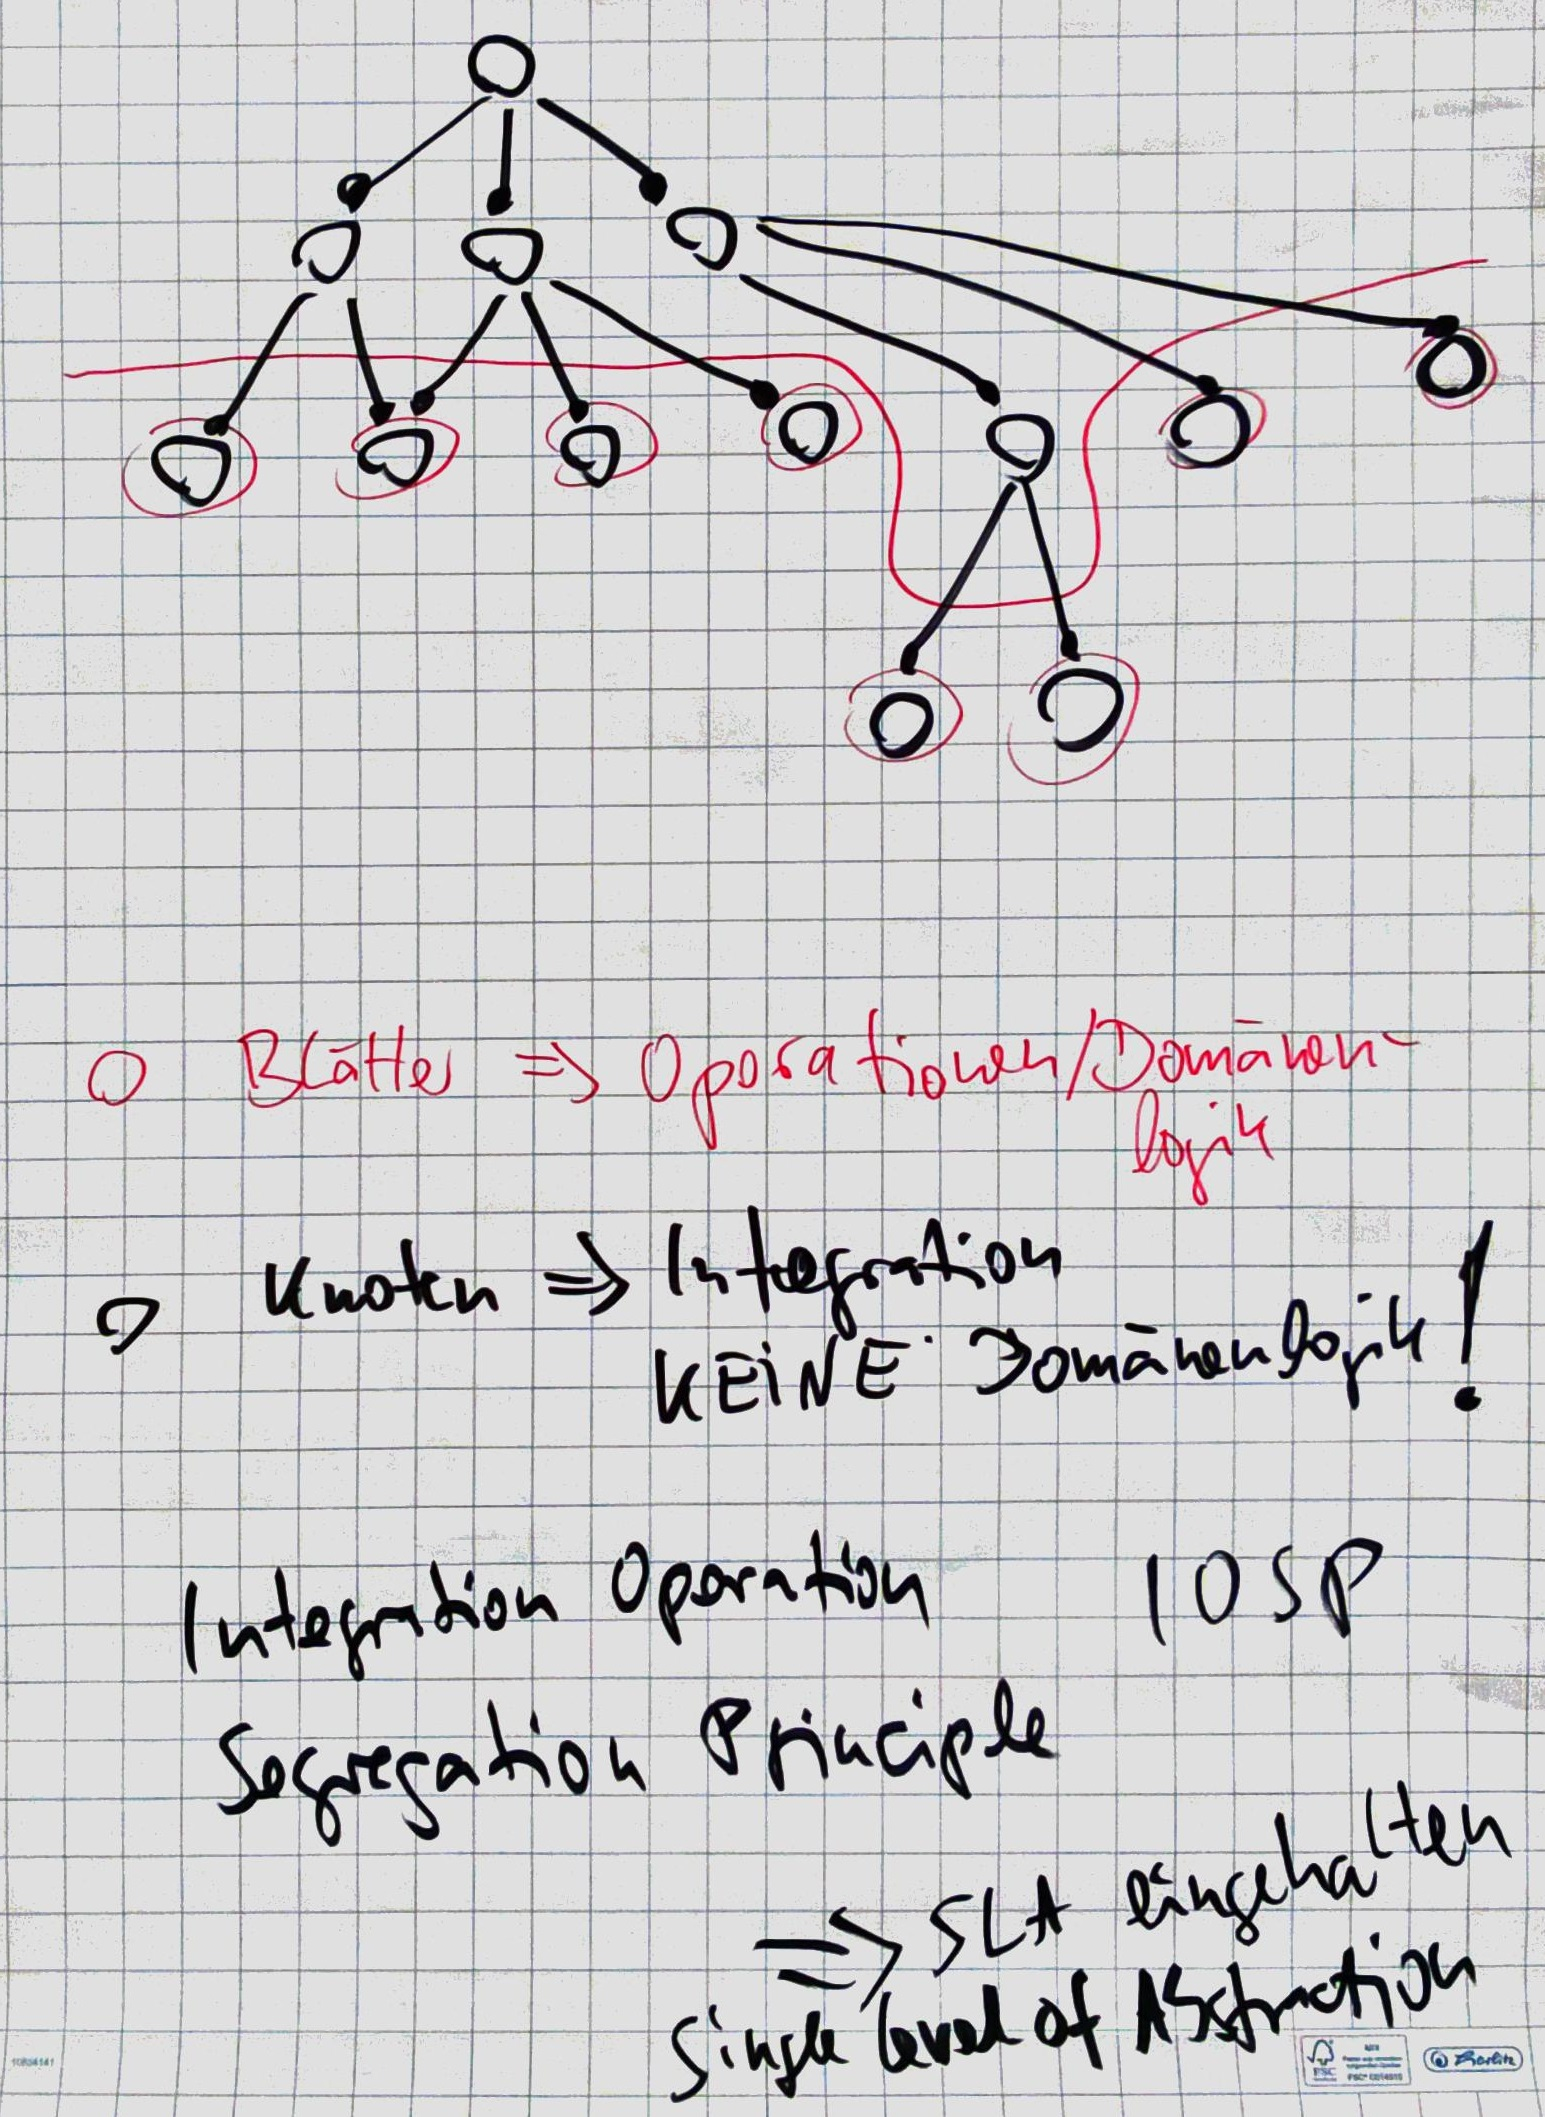 Blätter => Operationen/Domänen-
logik
Knoten => Integration
KEINE Domänenlogik!
Integration Operation IOSP
Segregation Principle
=> SLA eingehalten
Single level of Abstraction
10834141
FSC
MIX
FSC
Herlitz